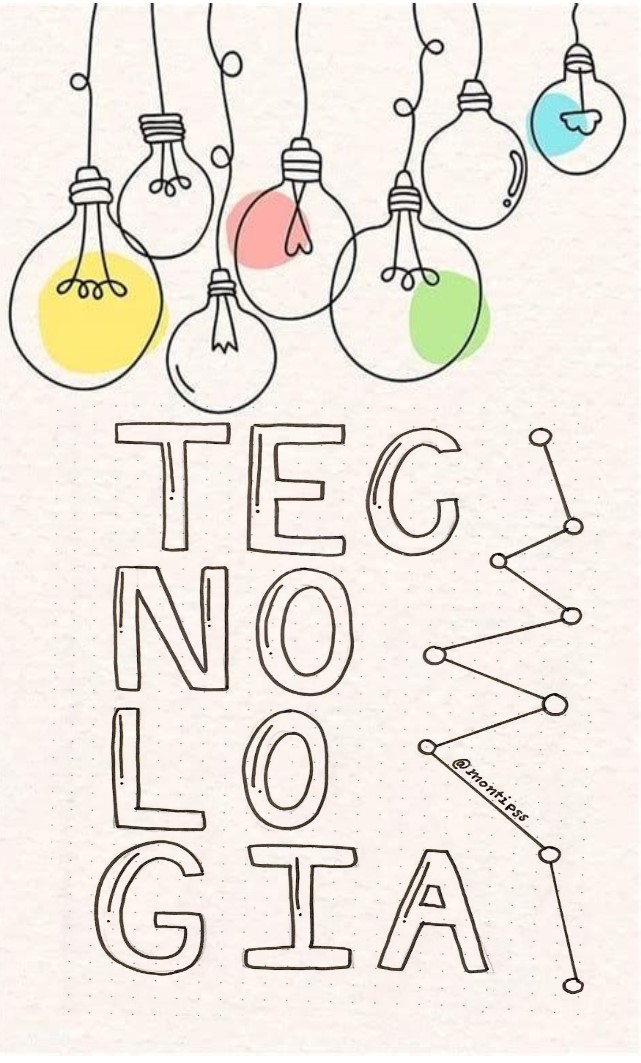 TEC
NO
LO
GIA
@montipss